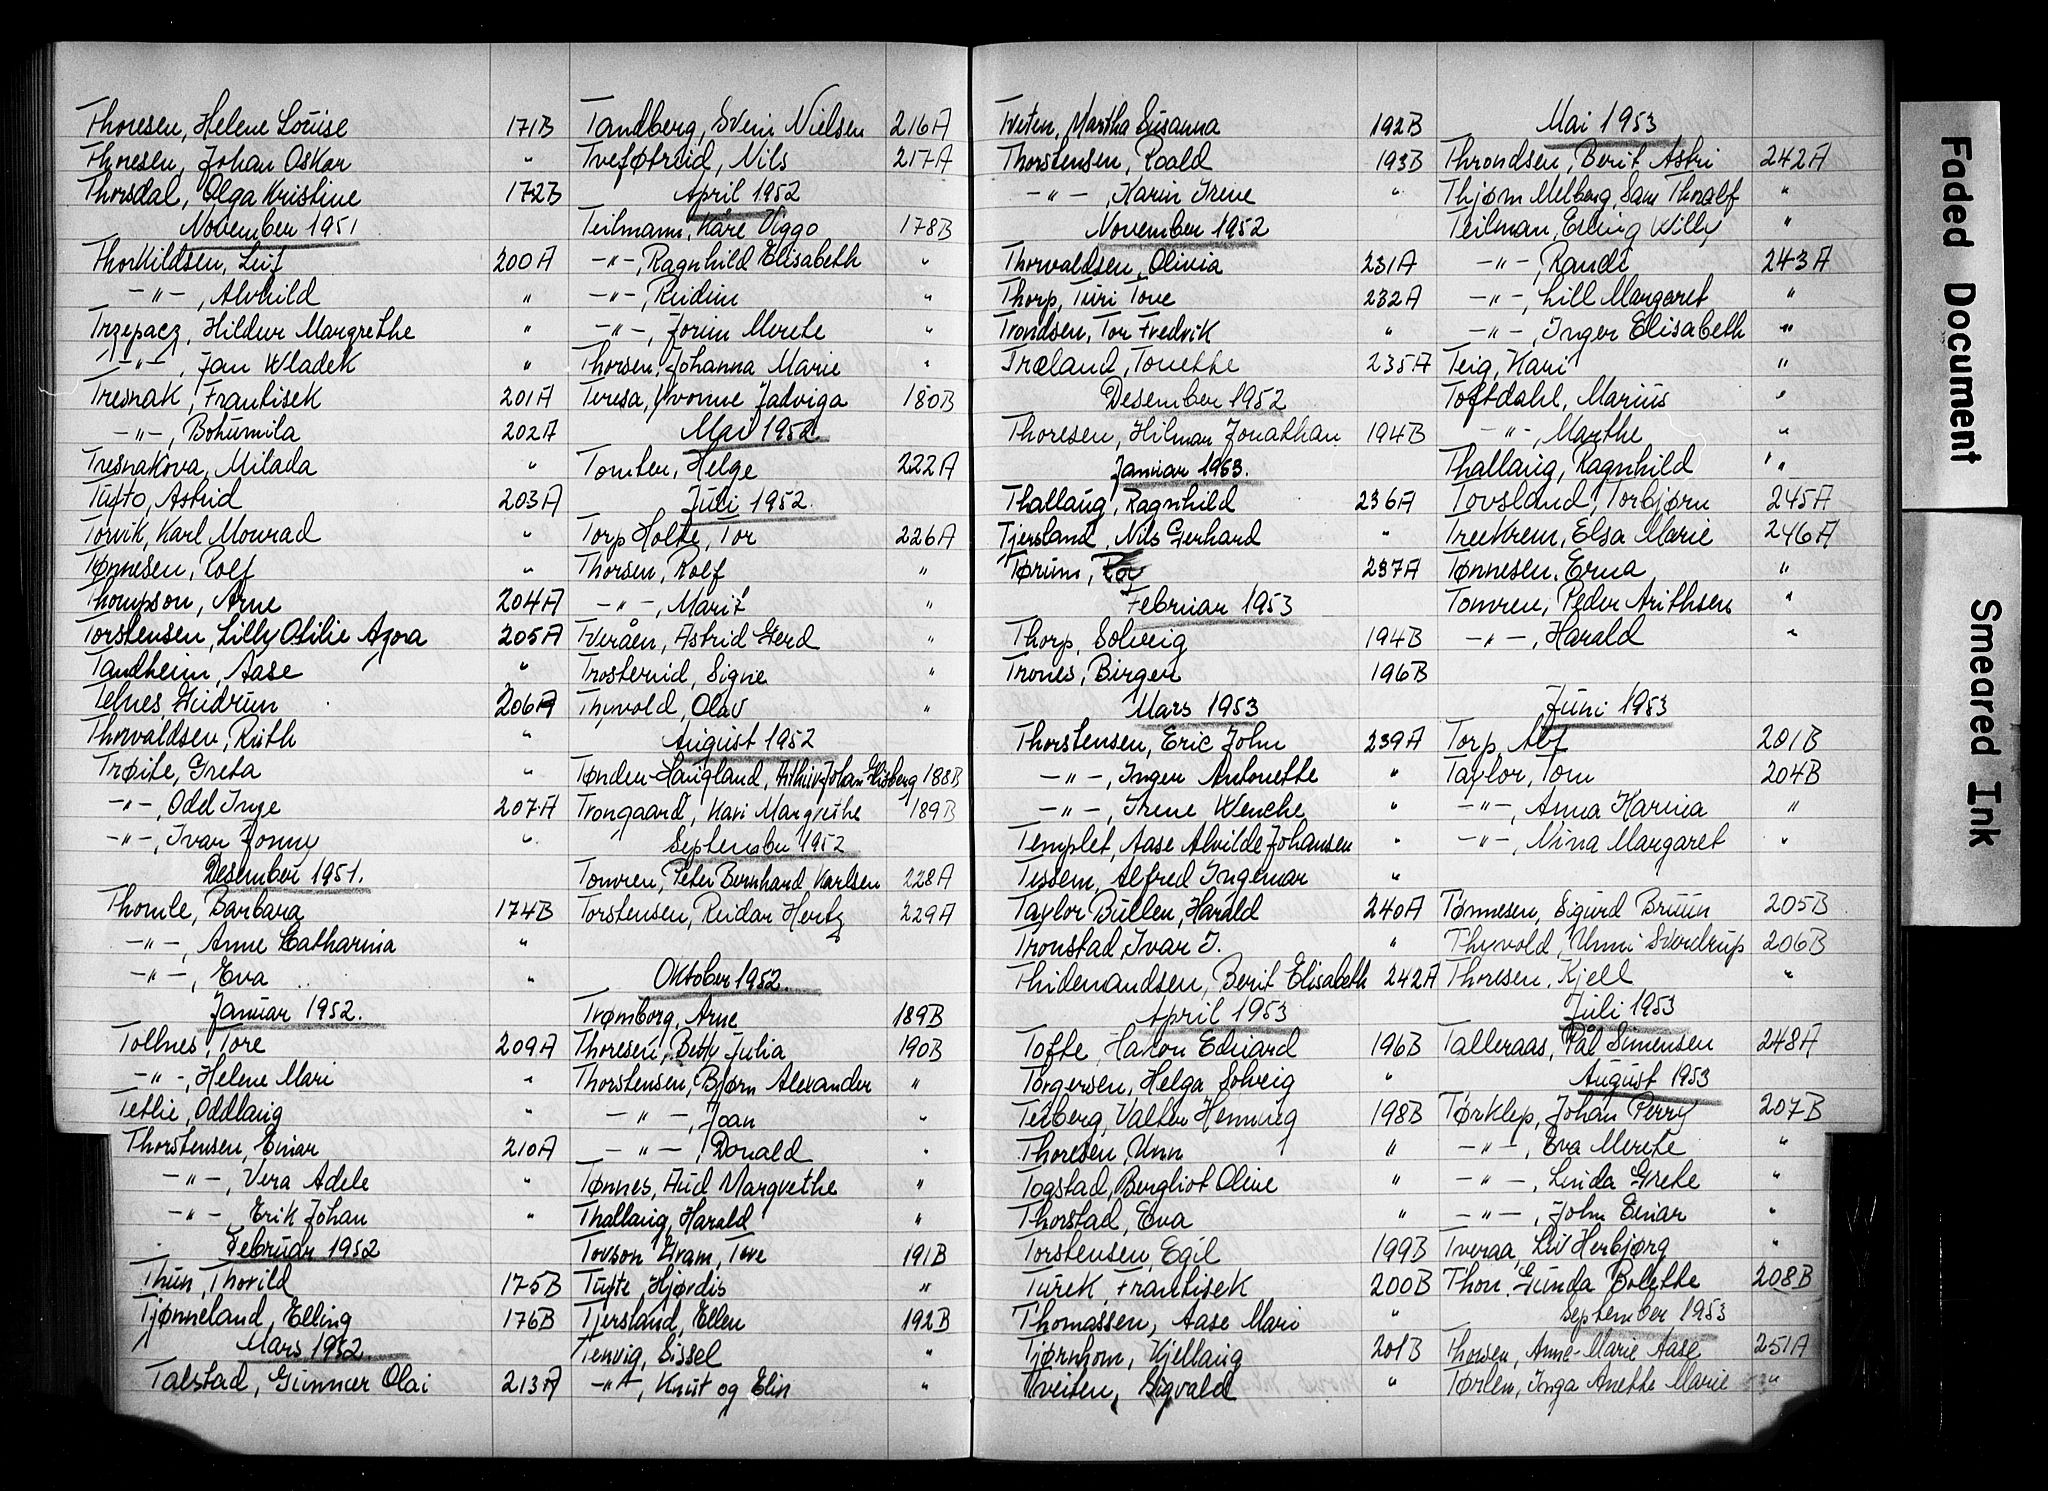 Thoresen, Helene Louise 171B
Thoresen, Johan Oskar "
Thorsdal, Olga Kristine 172B
November 1951
Thorkildsen, Leif 200A
-"-, Alvhild "
Trzepacz, Hildur Margrethe "
-"-, Jan Wladek "
Tresnak, Frantisek 201A
-"-, Bohumila 202A
Tresnakova, Milada "
Tufto, Astrid 203A
Torvik, Karl Monrad "
Tønnesen, Rolf "
Thompson, Arne 204A
Torstensen, Lilly Otilie Agora 205A
Tandheim, Aase "
Telnes, Gudrun 206A
Thorvaldsen, Ruth "
Trøite, Greta "
-"-, Odd Inge 207A
-"-, Ivar Jonny "
Desember 1951.
Thomle, Barbara 174B
-"-, Anne Catharina "
-"-, Eva "
Januar 1952.
Tollnes, Tore 209A
-"-, Helene Mari "
Tetlie, Oddlaug "
Thorstensen, Einar 210A
-"-, Vera Adele "
-"- Erik Johan "
Februar 1952
Thun, Thorild 175B
Tjønneland, Elling 176B
Mars 1952.
Talstad, Gunnar Olai 213A
Tandberg, Svein Nielsen 216A
Tveføtreid, Nils 217A
April 1952
Teilmann, Kåre Viggo 178B
-"-, Ragnhild Elisabeth "
-"-, Reidun "
-"-, Jorun Merete "
Thorsen, Johanna Marie "
Teresa, Yvonne Jadviga 180B
Mai 1952
Tomten, Helge 222A
Juli 1952.
Torp Holte, Tor 226A
Thorsen, Rolf "
-"-, Marit "
Tveråen, Astrid Gerd "
Trosterud, Signe "
Thyvold, Olav "
August 1952
Tønder-Haugland, Johan 188B
Trongaard, Kari Margrethe 189B
September 1952
Tomren, Peter Bernhard Karlsen 228A
Torstensen, Reidar Hertz 229A
Oktober 1952.
Trømborg, Arne 189B
Thoresen, Betty Julia 190B
Thorstensen, Bjørn Alexander "
-"-, Joan "
-"-, Donald "
Tønnes, Aud Margrethe "
Thallaug, Harald "
Tovson Kvam, Tove 191B
Tufte, Hjørdis "
Tjersland, Ellen 192B
Tenvig, Sissel "
-"-, Knut og Elin "
Tveten, Martha Susanna 192B
Thorstensen, Roald 193B
-"-, Karin Irene "
November 1952
Thorvaldsen, Olivia 231A
Thorp, Turi Tove 232A
Trondsen, Tor Fredrik "
Træland, Tonette 235A
Desember 1952
Thoresen, Hilmar Jonathan 194B
Januar 1953.
Thallaug, Ragnhild 236A
Tjersland, Nils Gerhard "
Tørum, 237A
Februar 1953
Thorp, Solveig 194B
Trones, Birger 196B
Mars 1953
Thorstensen, Eric John 239A
-"-, Inger Antonette "
-"-, Irene Wenche "
Templet, Aase Alvilde Johansen "
Tessem, Alfred Ingemar "
Taylor Bullen, Harald 240A
Tronstad, Ivar J. "
Thidemandsen, Berit Elisabeth 242A
April 1953
Tofte, Hakon Edvard 196B
Torgersen, Helga Solveig "
Teiberg, Valter Henning 198B
Thoresen, Unn "
Togstad, Bergliot Oline "
Thorstad, Eva "
Torstensen, Egil 199B
Turek, Frantisek 200B
Thomassen, Aase Mari "
Tjørnhom, Kjellaug 201B
Tveiten, Sigvald "
Mai 1953
Throndsen, Berit Astri 242A
Thjøm Melberg, Sam Thoralf "
Teilman, Erling Willy "
-"-, Randi 243A
-"-, Lill Margaret "
-"-, Inger Elisabeth "
Teig, Kari "
Toftdahl, Marius "
-"-, Marthe "
Thallaug, Ragnhild "
Tovsland, Torbjørn 245A
Treekrem, Elsa Marie 246A
Tønnesen, Erna "
Tomren, Peder Arithsen "
-"-, Harald "
Juni 1953
Torp, Alf 201B
Taylor, Tom 204B
-"-, Anna Karina "
-"-, Nina Margaret "
Tønnesen, Sigurd Bruun 205B
Thyvold, Unni Sverdrup 206B
Thoresen, Kjell "
Juli 1953
Talleraas, Pål Simensen 248A
August 1953
Tørklep, Johan Perry 207B
-"-, Eva Merete "
-"-, Linda Grete "
-"-, John Einar "
Tveraa, Liv Herbjørg "
Thon, Gunda Bolette 208B
September 1953
Thorsen, Anne-Marie Aase 251A
Tørlen, Inga Anette Marie "
Faded Document
Smeared Ink